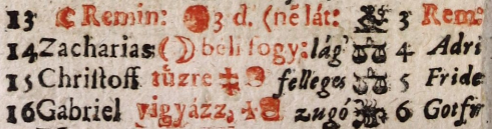 13 Remin: 3 d. (né lát: 3 Rem:
14 Zacharias beli fogy: lág' 4 Adri
15 Chriſtoff tűzre felleges 5 Fride
16 Gabriel vigyázz, zugó 6 Gotfr